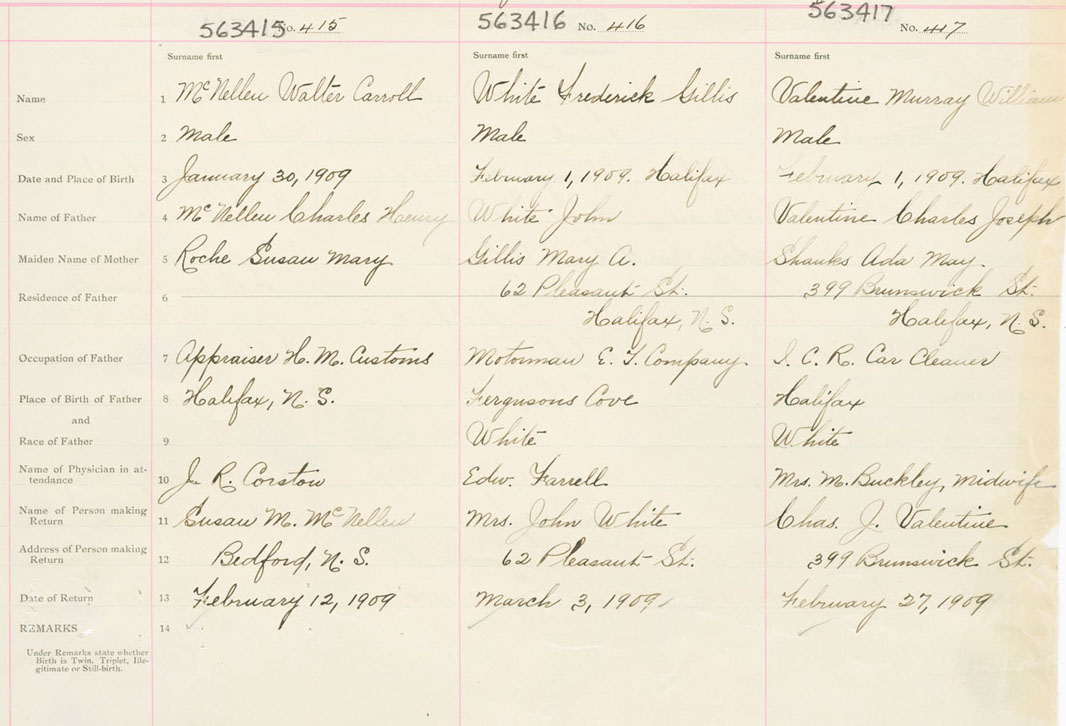 563415 No. 415 563416 No. 416 563417 No. 417
Surname first Surname first Surname first
Name 1 McNellen Walter Carroll White Frederick Gillis Valentine Murray William
Sex 2 Male Male Male
Date and Place of Birth 3 January 30, 1909 February 1, 1909. Halifax February 1, 1909. Halifax
Name of Father 4 McNellen Charles Henry White John Valentine Charles Joseph
Maiden Name of Mother 5 Roche Susan Mary Gillis Mary A. Shanks Ada May.
Residence of Father 6 62 Pleasant St. 399 Brunswick St.
Halifax, N. S. Halifax, N. S.
Occupation of Father 7 Appraiser H. M. Customs Motorman E. T. Company. I. C. R. Car Cleaner
Place of Birth of Father 8 Halifax, N. S. Fergusons Cove Halifax
and
Race of Father 9 White White
Name of Physician in at-
tendance 10 J. R. Corston Edw. Farrell Mrs. M. Buckley, Midwife
Name of Person making
Return 11 Susan M. McNellen Mrs. John White Chas. J. Valentine
Address of Person making
Return 12 Bedford, N. S. 62 Pleasant St. 399 Brunswick St.
Date of Return 13 February 12, 1909 March 3, 1909 February 27, 1909
REMARKS 14
Under Remarks state whether
Birth is Twin, Triplet, Ille-
gitimate or Still-birth.